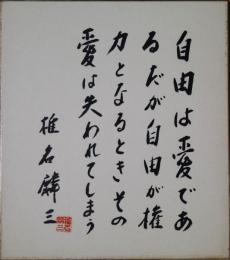 自由は愛であ
るだが自由が権
力となるときその
愛は失われてしまう
椎名麟三